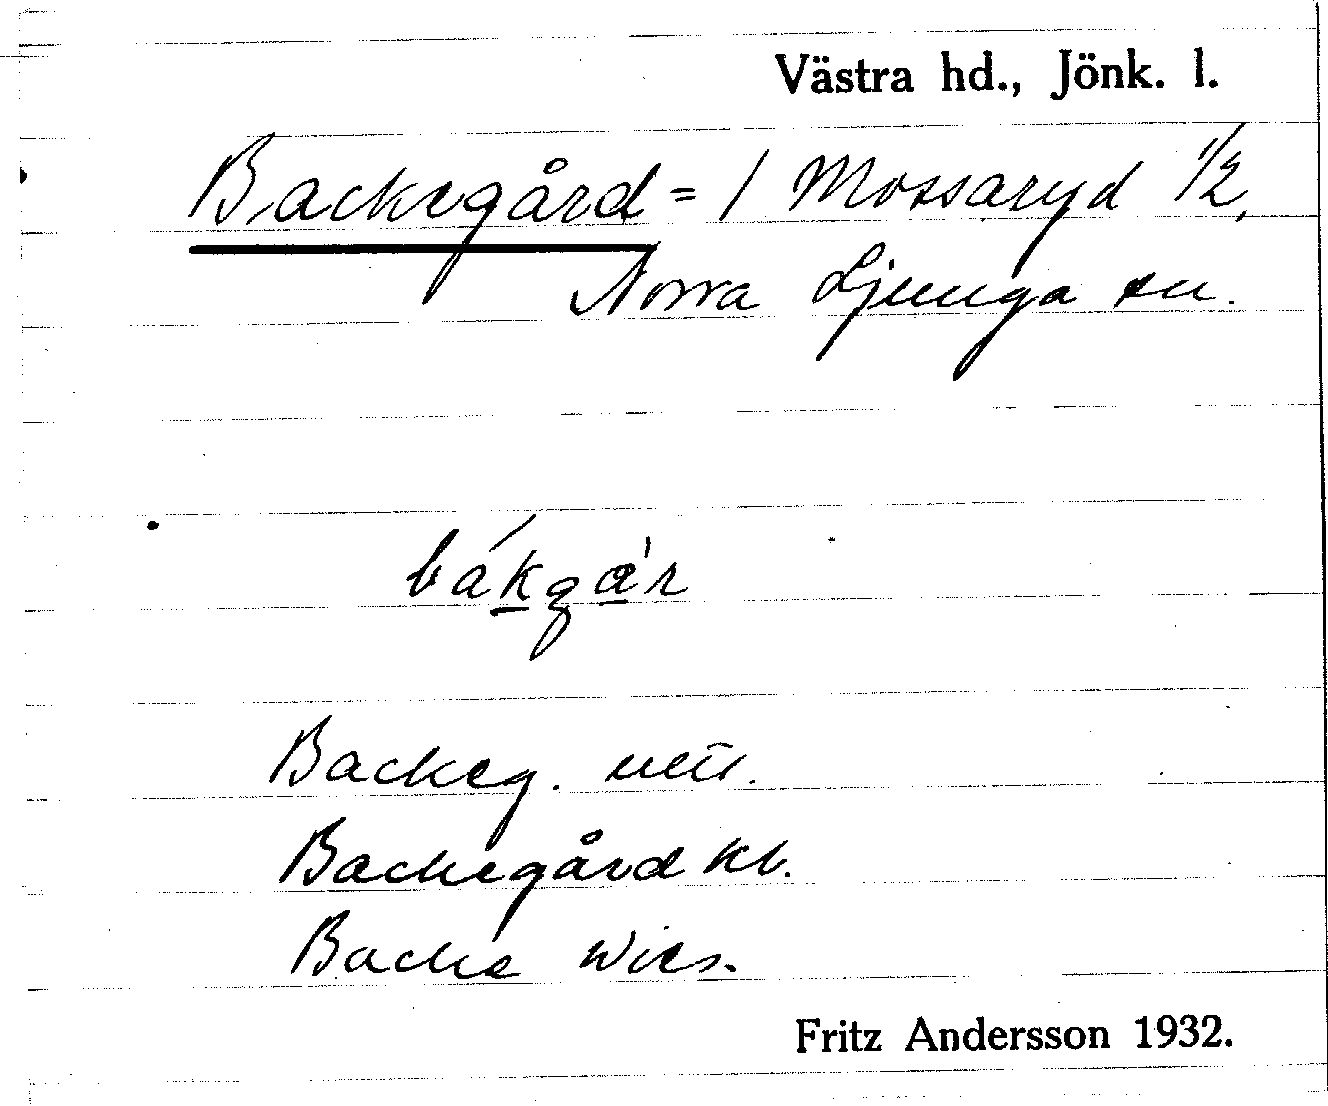 Västra hd., Jönk. l.
Backegård = 1 Mossaryd 1/2,
Norra Ljunga sn.
bákgàr
Backeg.
Backegård kb.
Backe Wies.
Fritz Andersson 1932.